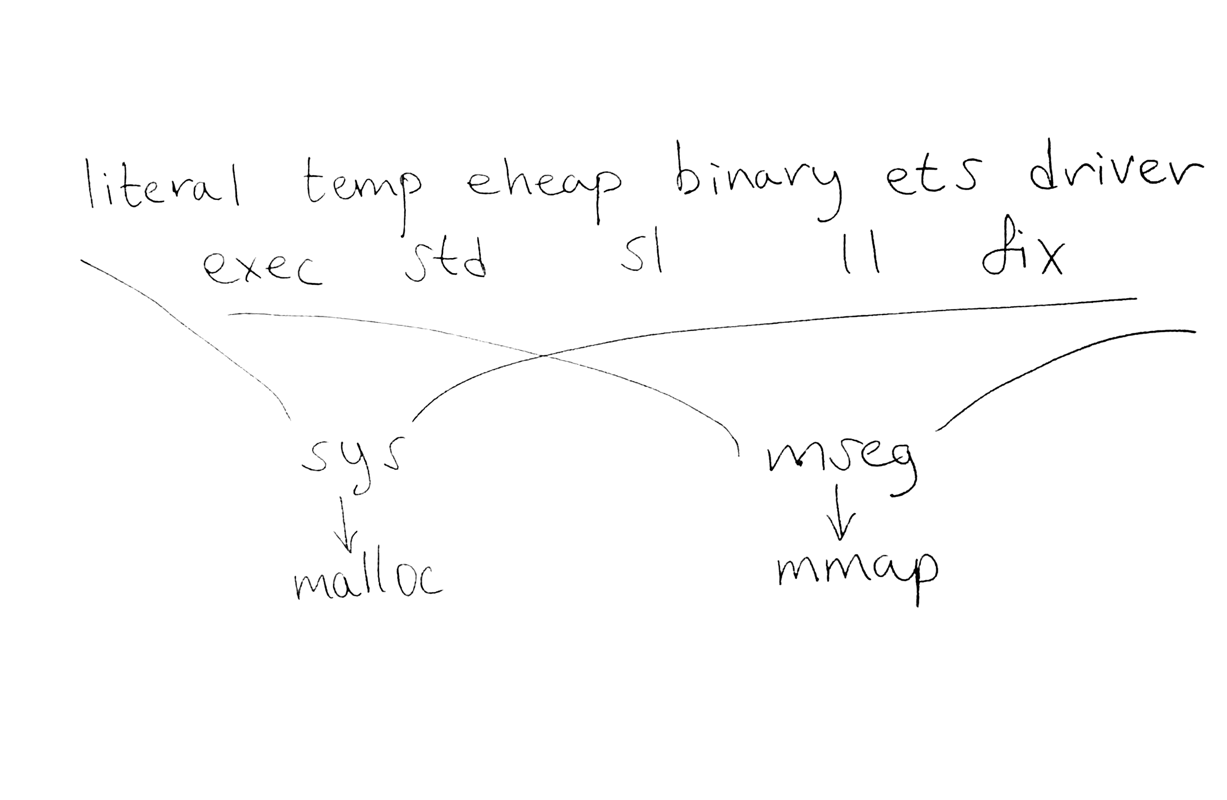 literal temp eheap binary ets driver
exec std sl ll fix
sys mseg
malloc mmap